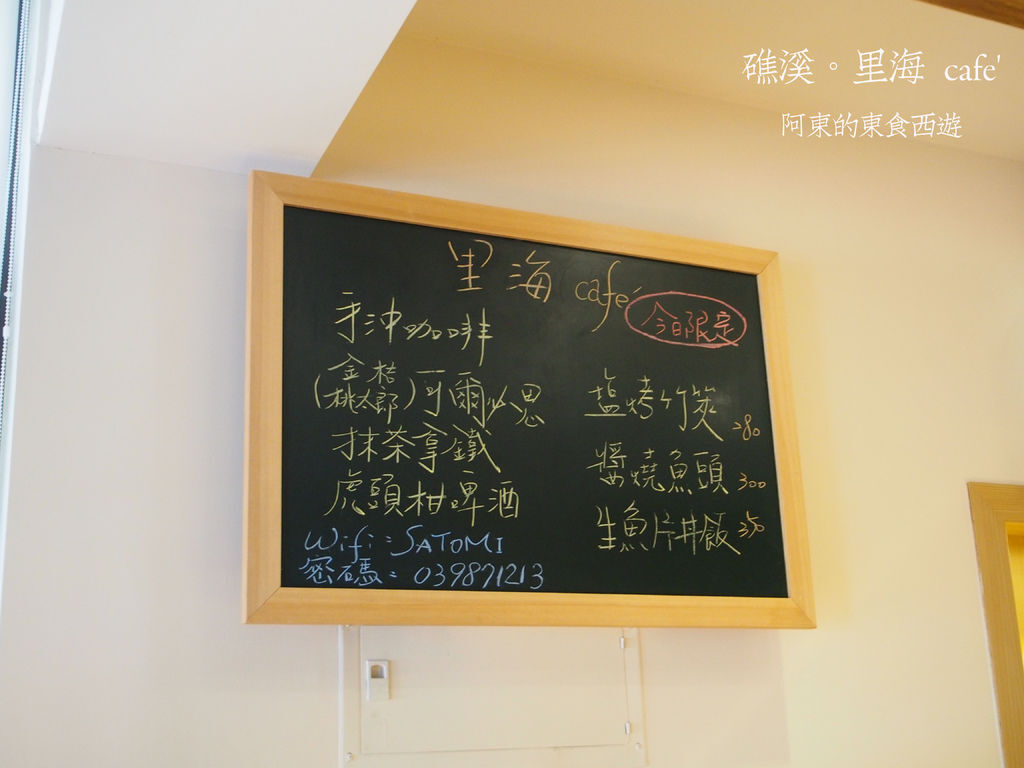 礁溪。里海 cafe'
阿東的東食西遊
里海 cafe'
今日限定
手沖咖啡
(金桔
桃太郎)可爾必思
抹茶拿鐵
虎頭柑啤酒
Wifi:SATOMI
密碼:039871213
塩烤竹筴 280
醬燒魚頭 300
生魚片丼飯 350